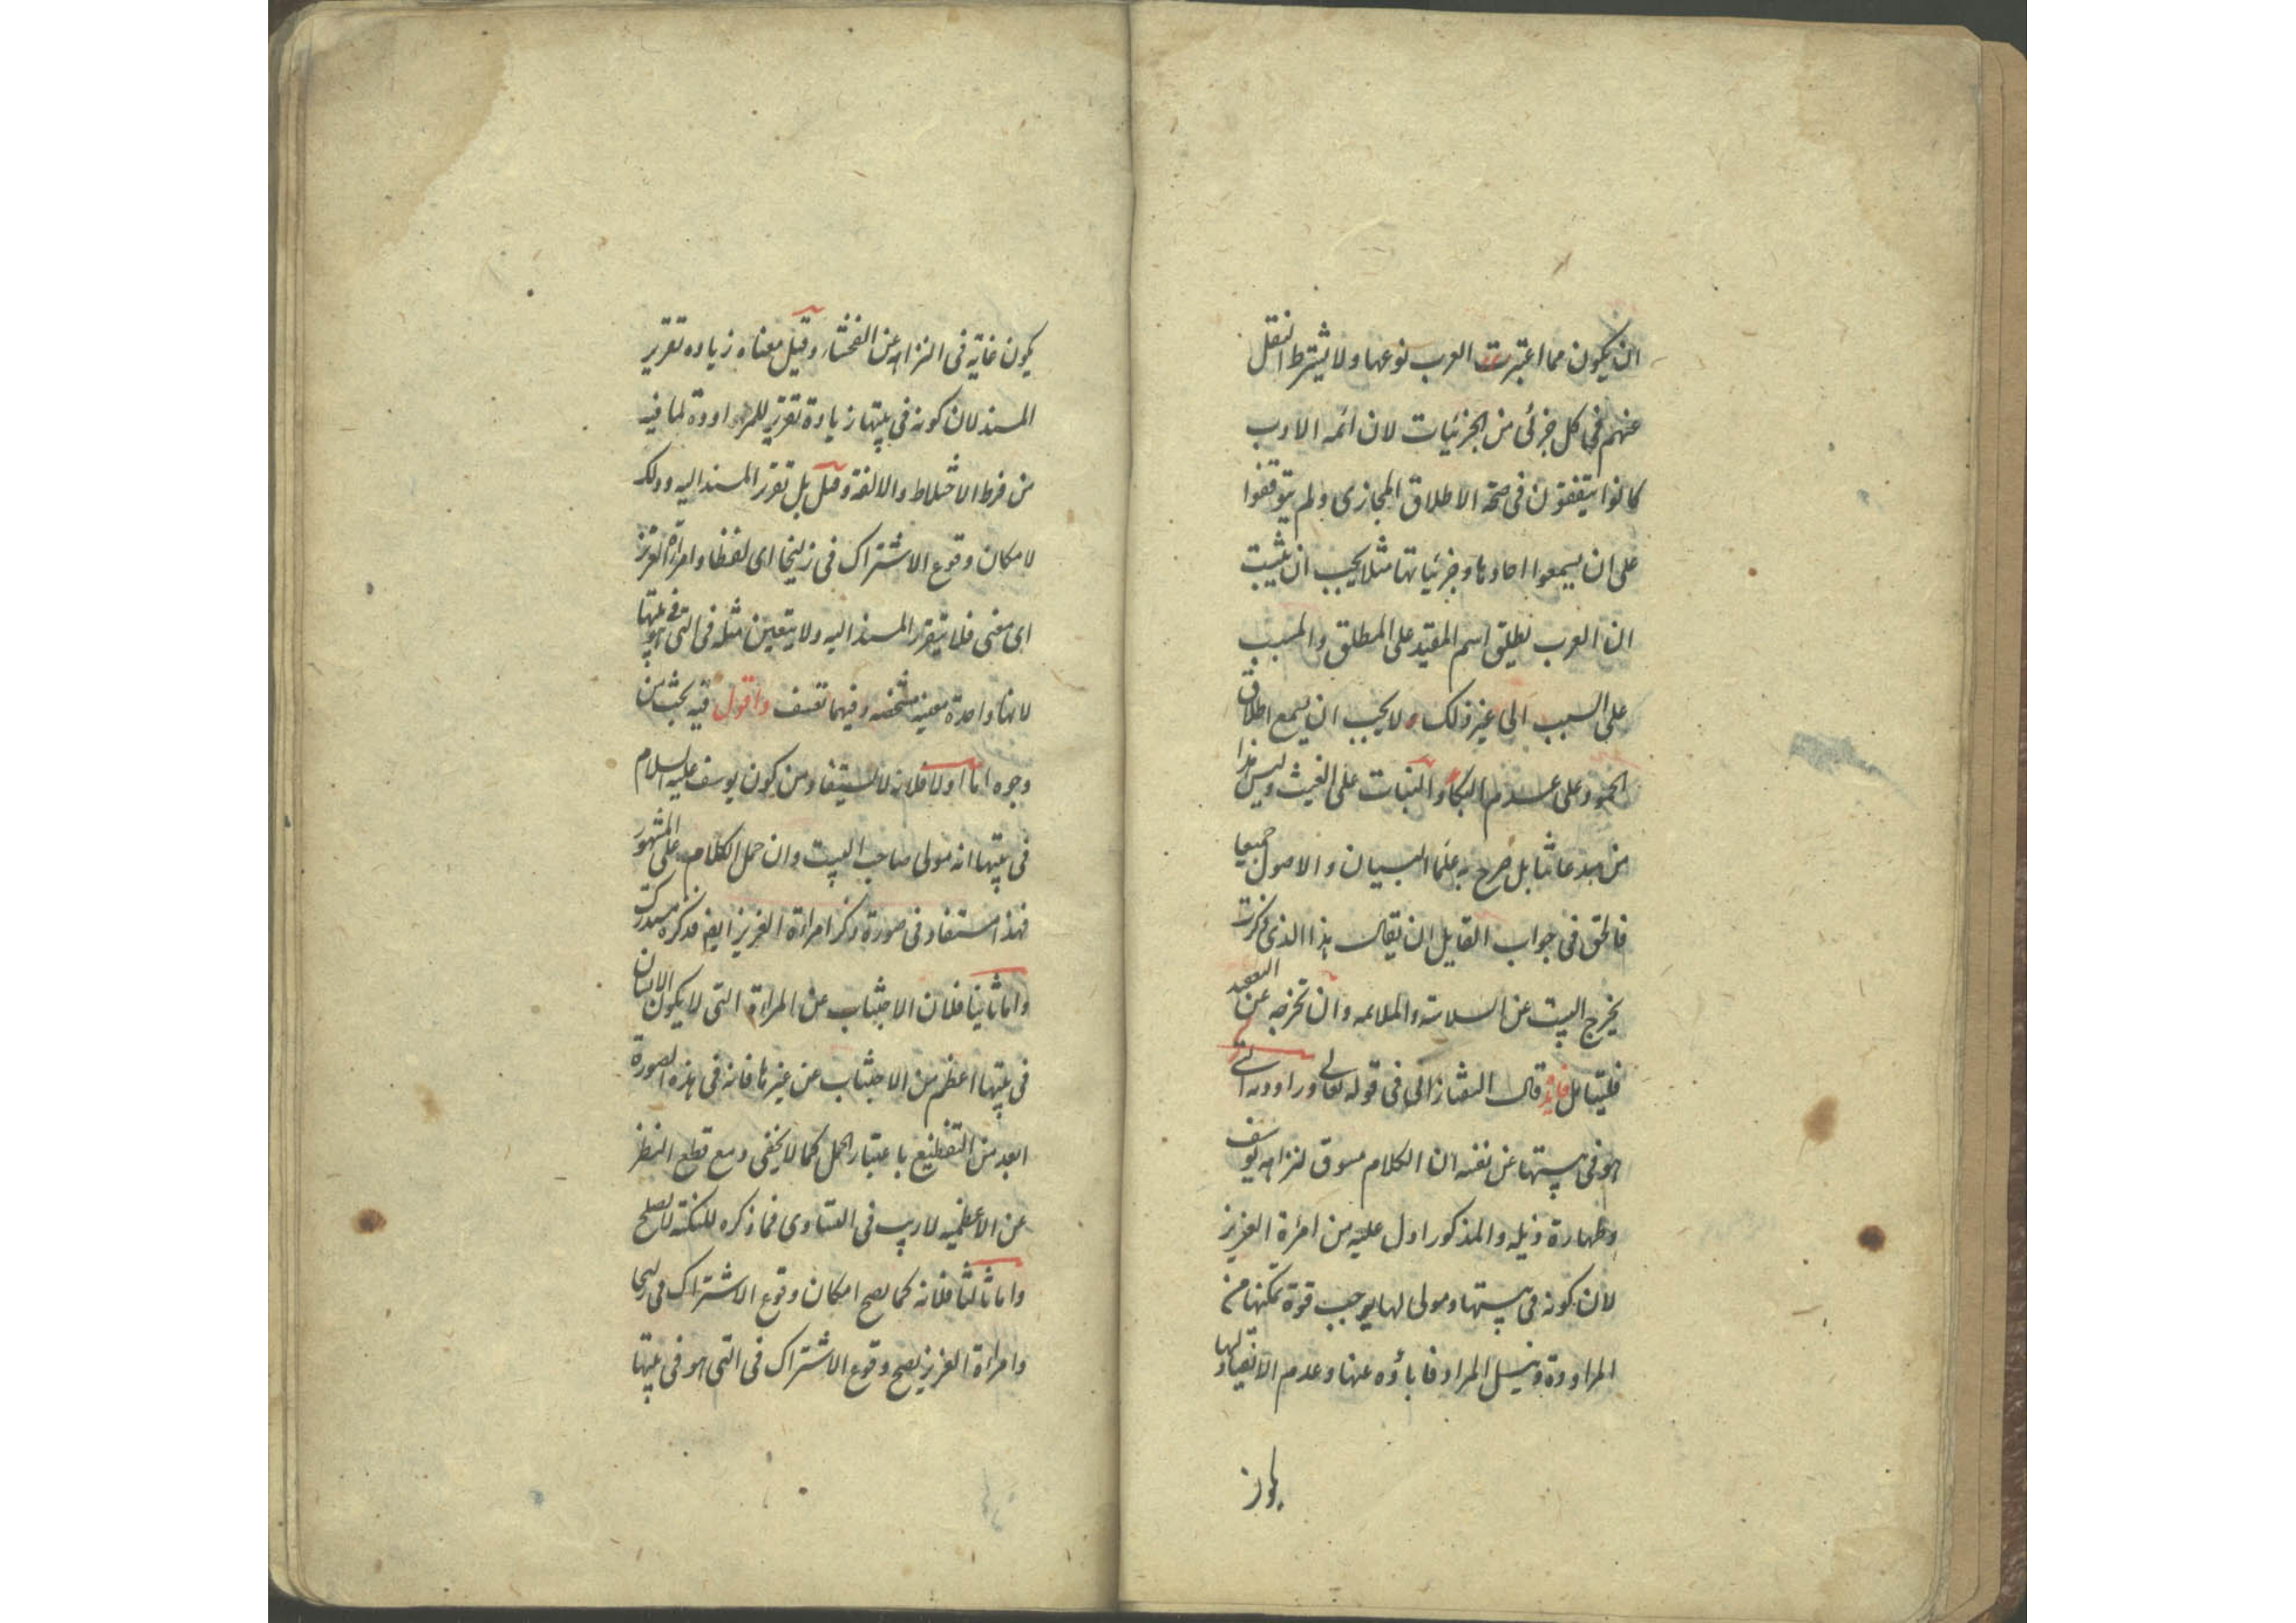 ان يكون مما اعتبرت العرب نوعها ولا يشترط النقل
عنهم في كل جزئى من الجزئيات لان ائمه الادب
كانوا يتفقون فى صحة الاطلاق المجازى ولم يتوقفوا
على ان يسمعوا احادها وجزئياتها مثلا يجب ان يثبت
ان العرب يطلق اسم المقيد على المطلق والمسبب
على السبب الى غير ذلك ولا يجب ان يسمع اطلاق
الجمود على عدم البكاء والنبات على الغيث وليس هذا
من مبدعاتنا بل صرح به علما البيان والاصول جميعا
فالحق فى جواب القايل ان يقال هذا الذى ذكرت
يخرج البيت عن السلاسة والملاءمه وان تخرجه عن التعقيد
فليتامل فائدة قال التفتازانى فى قوله تعالى وراودته التى
هو فى بيتها عن نفسه ان الكلام مسوق لنزاهه يوسف
وطهارة ذيله والمذكور ادل عليه من امراة العزيز
لان كونه فى بيتها ومولى لها يوجب قوة تمكنها من
المراودة ونيل المراد فاباؤه عنها وعدم الانقياد لها
يكون غاية فى النزاهه عن الفحشاء وقيل معناه زياده تقرير
المسند لان كونه فى بيتها زيادة تقرير للمراودة لما فيه
من فرط الاختلاط والالفة وقيل بل تقرر المسند اليه وذلك
لامكان وقوع الاشتراك فى زليخا اى لفظا وامراة العزيز
اى معنى فلا يتقرر المسند اليه ولا يتعين مثله فى التى هو فى بيتها
لانها واحدة معينه مشخصه وفيهما تعسف واقول فيه بحث من
وجوه اما اولا فلانه لا يستفاد من كون يوسف عليه السلام
فى بيتها انه مولى صاحب البيت وان حمل الكلام على المشهور
فهذا مستفاد فى صورة ذكر امراءة العزيز ايضا فذكره مستدرك
واما ثانيا فلان الاجتناب عن المراءة التى لا يكون الانسان
فى بيتها اعظم من الاجتناب عن غيرها فانه فى هذه الصورة
ابعد من التفظيع باعتبار الحمل كما لا يخفى ومع قطع النظر
عن الاعظميه لا ريب فى التساوى فما ذكره للنكتة لا يصلح
واما ثالثا فلانه كما يصح امكان وقوع الاشتراك فى زليخا
وامراءة العزيز يصح وقوع الاشتراك فى التى هو فى بيتها